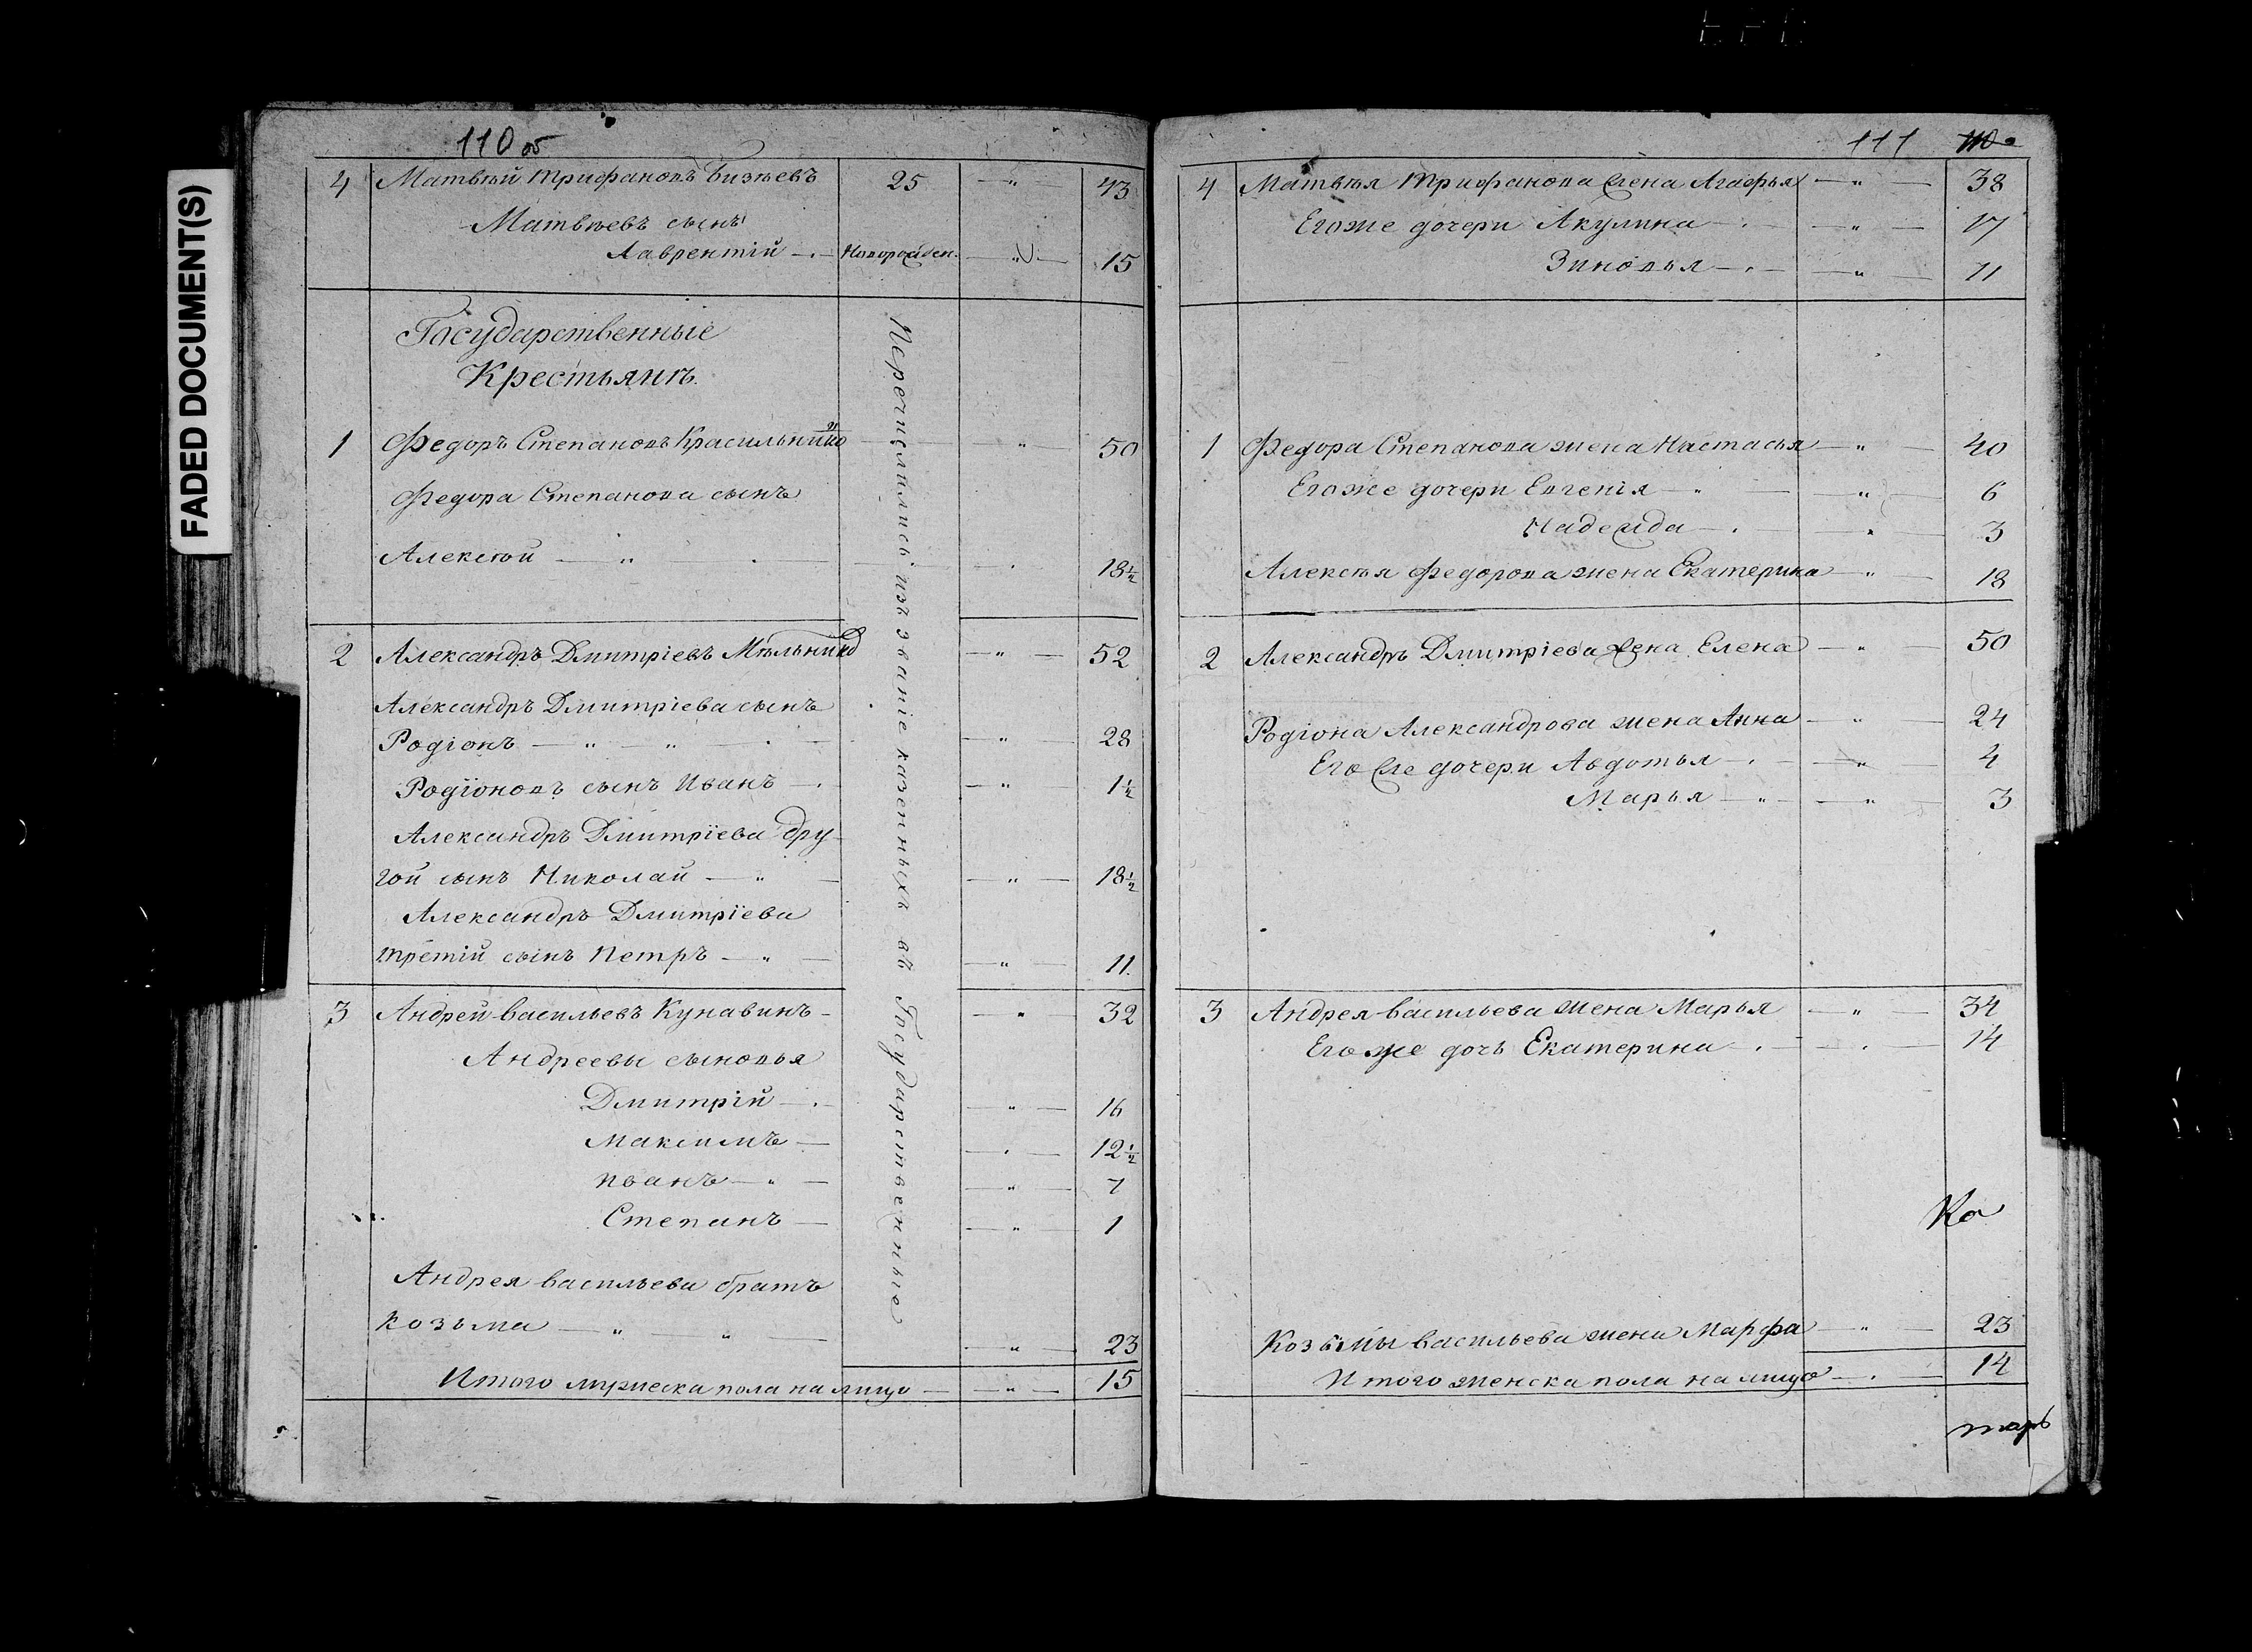 FADED DOCUMENT(S)
110 об
4 Матвѣй Трифановъ Бизѣевъ 25 — " — 43
Матвѣевъ сынъ
Лаврентій — . — Новорожден. — " — 15
Государственные
Крестьянѣ.
1 Федоръ Степановъ Красильник — " — 50
Федора Степанова сынъ
Алексѣй — " — . — 18½
2 Александръ Дмитріевъ Мѣльник — " — 52
Александръ Дмитріева сынъ
Родіонъ — " — " — . — " — 28
Родіоновъ сынъ Иванъ — . — " — 1½
Александръ Дмитріева дру-
гой сынъ Николай — " — — " — 18½
Александръ Дмитріева
третій сынъ Петръ — " — — " — 11.
3 Андрей Васильевъ Кунавинъ — — " — 32
Андреевы сыновья
Дмитрій — . — — " — 16
Максимъ — — . — 12½
Иванъ — " — — " — 7
Степанъ — — " — 1
Андрея Васильева братъ
Козьма — " — " — — " — 23
Итого мужеска пола на лицо — — " — 15
Перечислились изъ званіе казенныхъ въ Государственные
111 110
4 Матвѣя Трифанова жена Агафья — " — 38
Егоже дочери Акулина — . — — " — 17
Зиновья — . — — " — 11
1 Федора Степанова жена Настасья — " — 40
Егоже дочери Евгенія — " — — " — 6
Надежда — . — — " — 3
Алексѣя Федорова жена Екатерина — " — 18
2 Александръ Дмитріева жена Елена — " — 50
Родіона Александрова жена Анна — " — 24
Его же дочери Авдотья — . — — " — 4
Марья — " — — " — 3
3 Андрея Васильева жена Марья — " — 34
Его же дочь Екатерина — . — . — 14
Ко
Козьмы Васильева жена Марфа — " — 23
Итого женска пола на лицо — . — 14
тарь